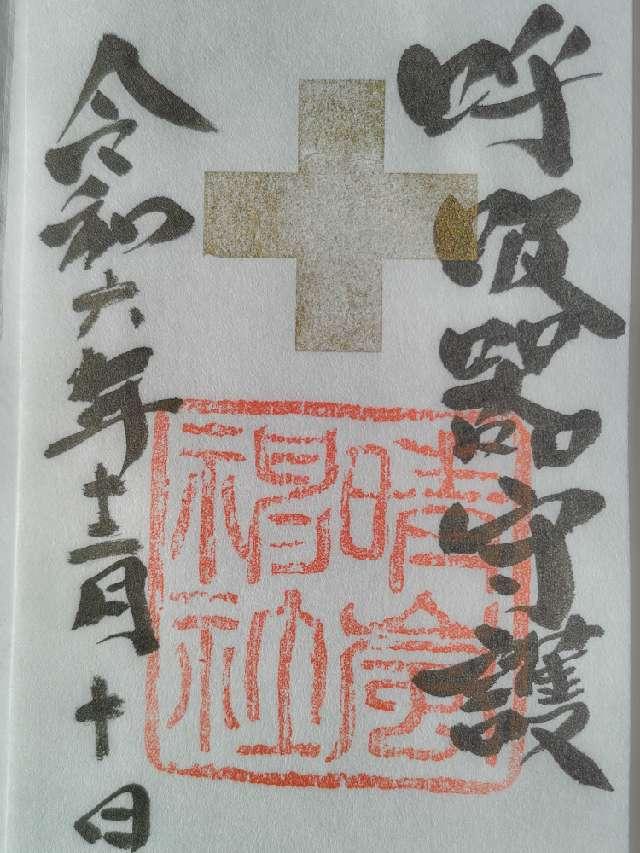 呼吸器守護
令和六年十二月十日
晴
神社